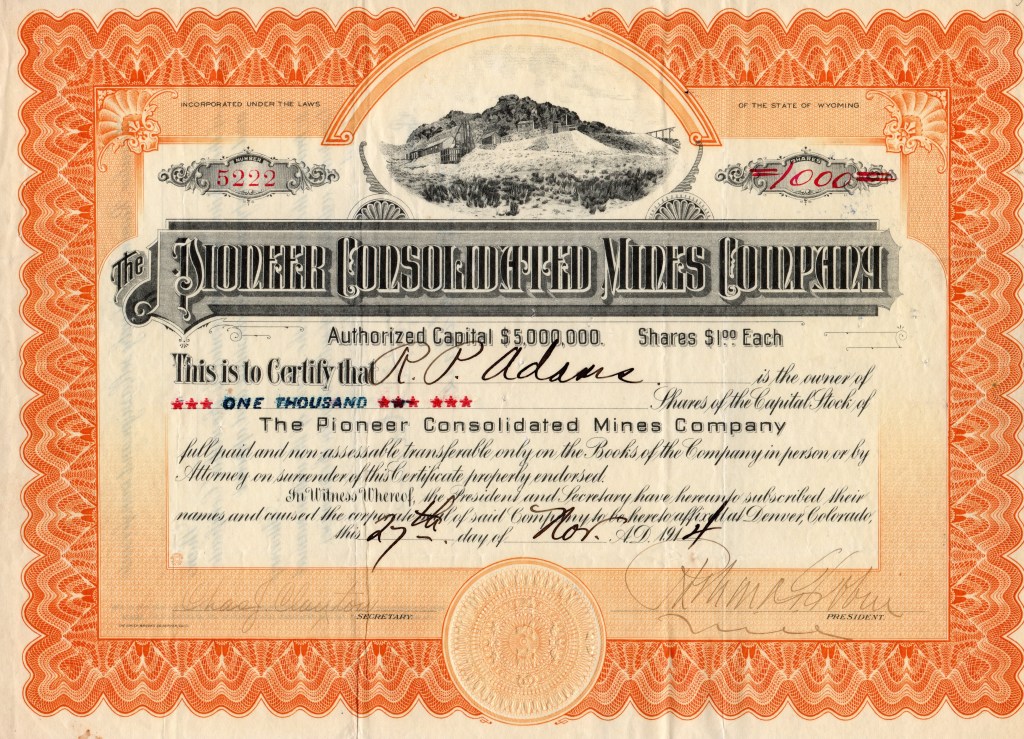 INCORPORATED UNDER THE LAWS OF THE STATE OF WYOMING
NUMBER
5222
SHARES
=1000=
The Pioneer Consolidated Mines Company
Authorized Capital $5,000,000. Shares $1.00 Each
This is to Certify that R. P. Adams is the owner of
*** ONE THOUSAND *** *** Shares of the Capital Stock of
The Pioneer Consolidated Mines Company
full paid and non-assessable transferable only on the Books of the Company in person or by
Attorney on surrender of this Certificate properly endorsed.
In Witness Whereof, the President and Secretary have hereunto subscribed their
names, and caused the corporate seal of said Company to be hereto affixed at Denver, Colorado,
this 27th day of Nov. A.D. 1914
Chas J Clayton
SECRETARY.
PRESIDENT.